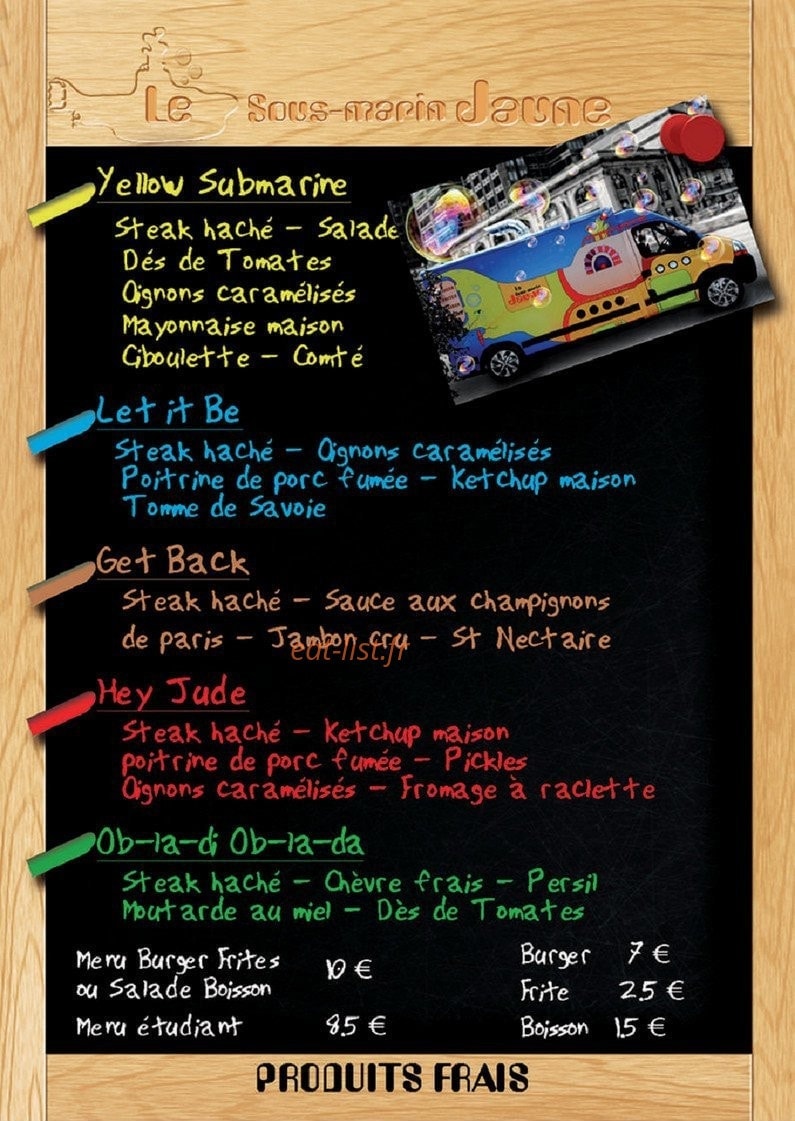 Le Sous-marin Jaune
Yellow Submarine
Steak haché - Salade
Dés de Tomates
Oignons caramélisés
Mayonnaise maison
Ciboulette - Comté
Let it Be
Steak haché - Oignons caramélisés
Poitrine de porc fumée - Ketchup maison
Tomme de Savoie
Get Back
Steak haché - Sauce aux champignons
de paris - Jambon cru - St Nectaire
eat-list.fr
Hey Jude
Steak haché - Ketchup maison
poitrine de porc fumée - Pickles
Oignons caramélisés - Fromage à raclette
Ob-la-di Ob-la-da
Steak haché - Chèvre frais - Persil
Moutarde au miel - Dès de Tomates
Menu Burger Frites 10 €
ou Salade Boisson
Menu étudiant 8.5 €
Burger 7 €
Frite 2.5 €
Boisson 1.5 €
PRODUITS FRAIS